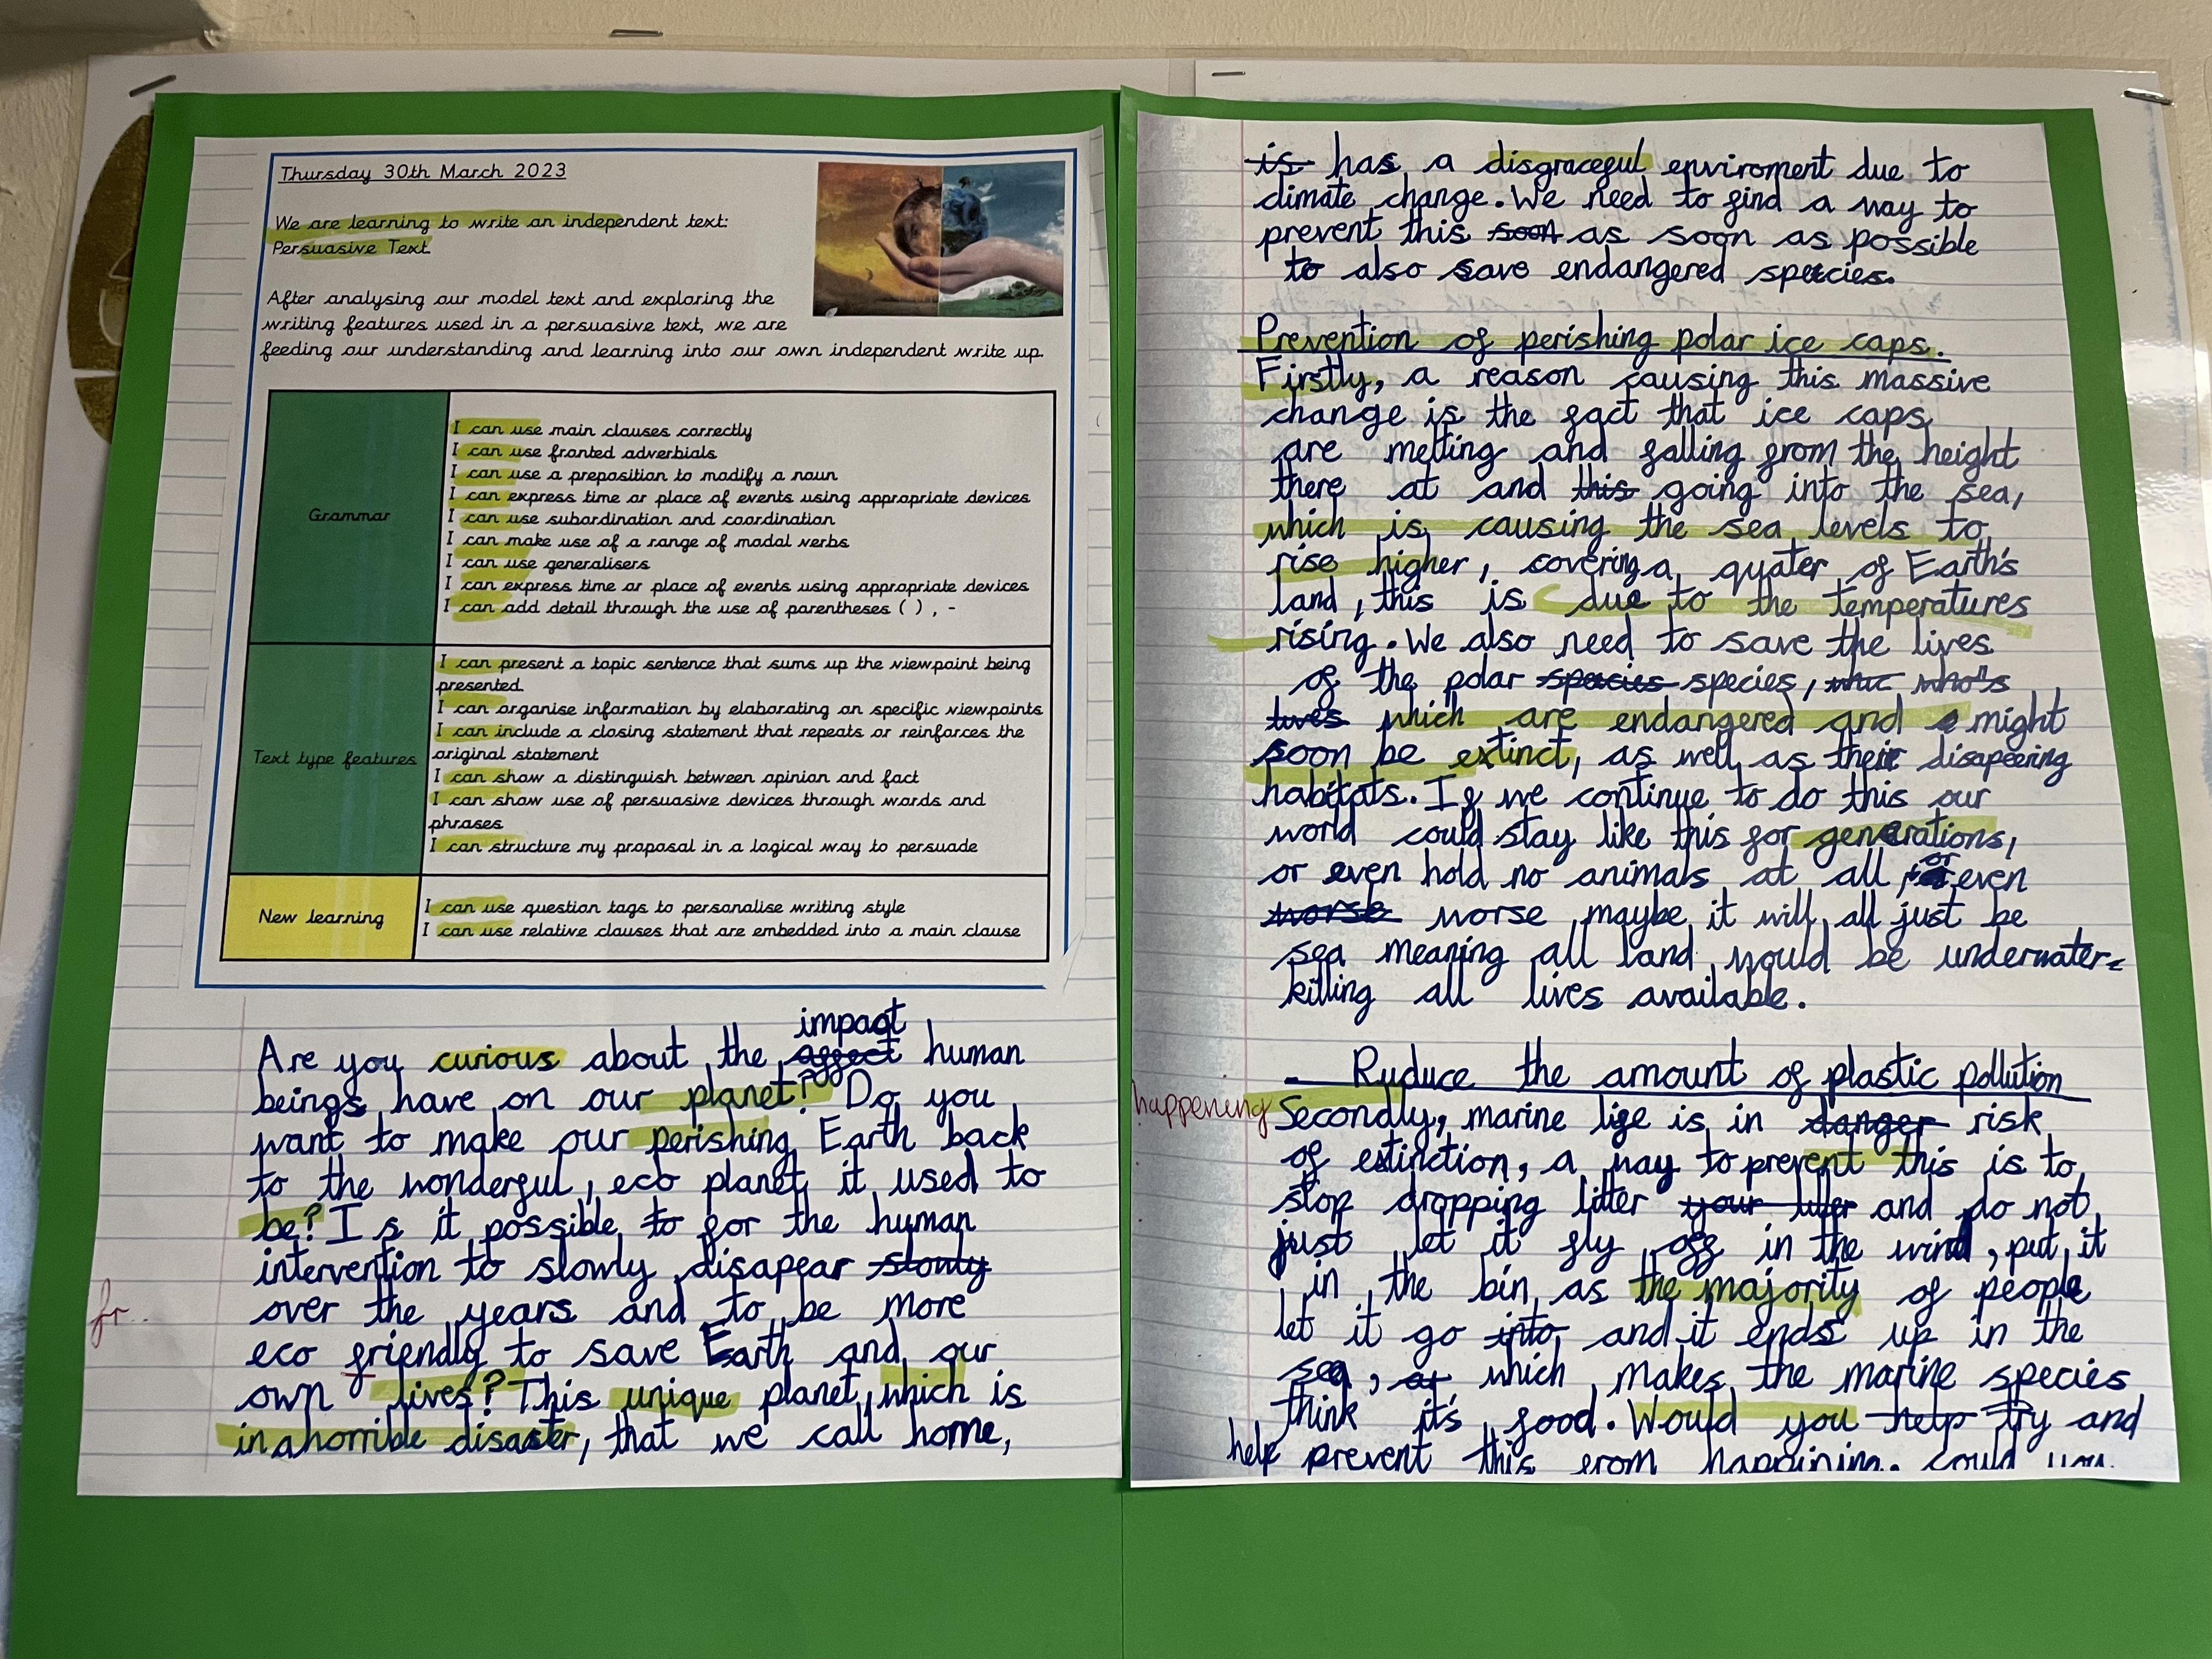 Thursday 30th March 2023
We are learning to write an independent text:
Persuasive Text
After analysing our model text and exploring the
writing features used in a persuasive text, we are
feeding our understanding and learning into our own independent write up.
Grammar
I can use main clauses correctly
I can use fronted adverbials
I can use a preposition to modify a noun
I can express time or place of events using appropriate devices
I can use subordination and coordination
I can make use of a range of modal verbs
I can use generalisers
I can express time or place of events using appropriate devices
I can add detail through the use of parentheses ( ) , -
Text type features
I can present a topic sentence that sums up the viewpoint being
presented.
I can organise information by elaborating on specific viewpoints
I can include a closing statement that repeats or reinforces the
original statement
I can show a distinguish between opinion and fact
I can show use of persuasive devices through words and
phrases
I can structure my proposal in a logical way to persuade
New learning
I can use question tags to personalise writing style
I can use relative clauses that are embedded into a main clause
impact
Are you curious about the affect human
beings have on our planet? Do you
want to make our perishing Earth back
to the wonderful, eco planet it used to
be? Is it possible to for the human
intervention to slowly disapear slowly
over the years and to be more
fr..
eco friendly to save Earth and our
own lives? This unique planet, which is
in a horrible disaster, that we call home,
is has a disgraceful enviroment due to
climate change. We need to find a way to
prevent this soon as soon as possible
to also save endangered species.
Prevention of perishing polar ice caps.
Firstly, a reason causing this massive
change is the fact that ice caps
are melting and falling from the height
there at and this going into the sea,
which is causing the sea levels to
rise higher, covering a quater of Earth's
land, this is due to the temperatures
rising. We also need to save the lives
of the polar species species, whic who's
lives which are endangered and might
soon be extinct, as well as their disapeering
habitats. If we continue to do this our
world could stay like this for generations,
or even hold no animals at all, or even
worse worse maybe it will all just be
sea meaning all land would be underwater-
killing all lives available.
Ruduce the amount of plastic pollution
happening
Secondly, marine life is in danger risk
of extinction, a way to prevent this is to
stop dropping litter your litter and do not
just let it fly off in the wind, put it
in the bin as the majority of people
let it go into and it ends up in the
sea, which makes the marine species
think it's food. Would you help try and
help prevent this from happining. Could you